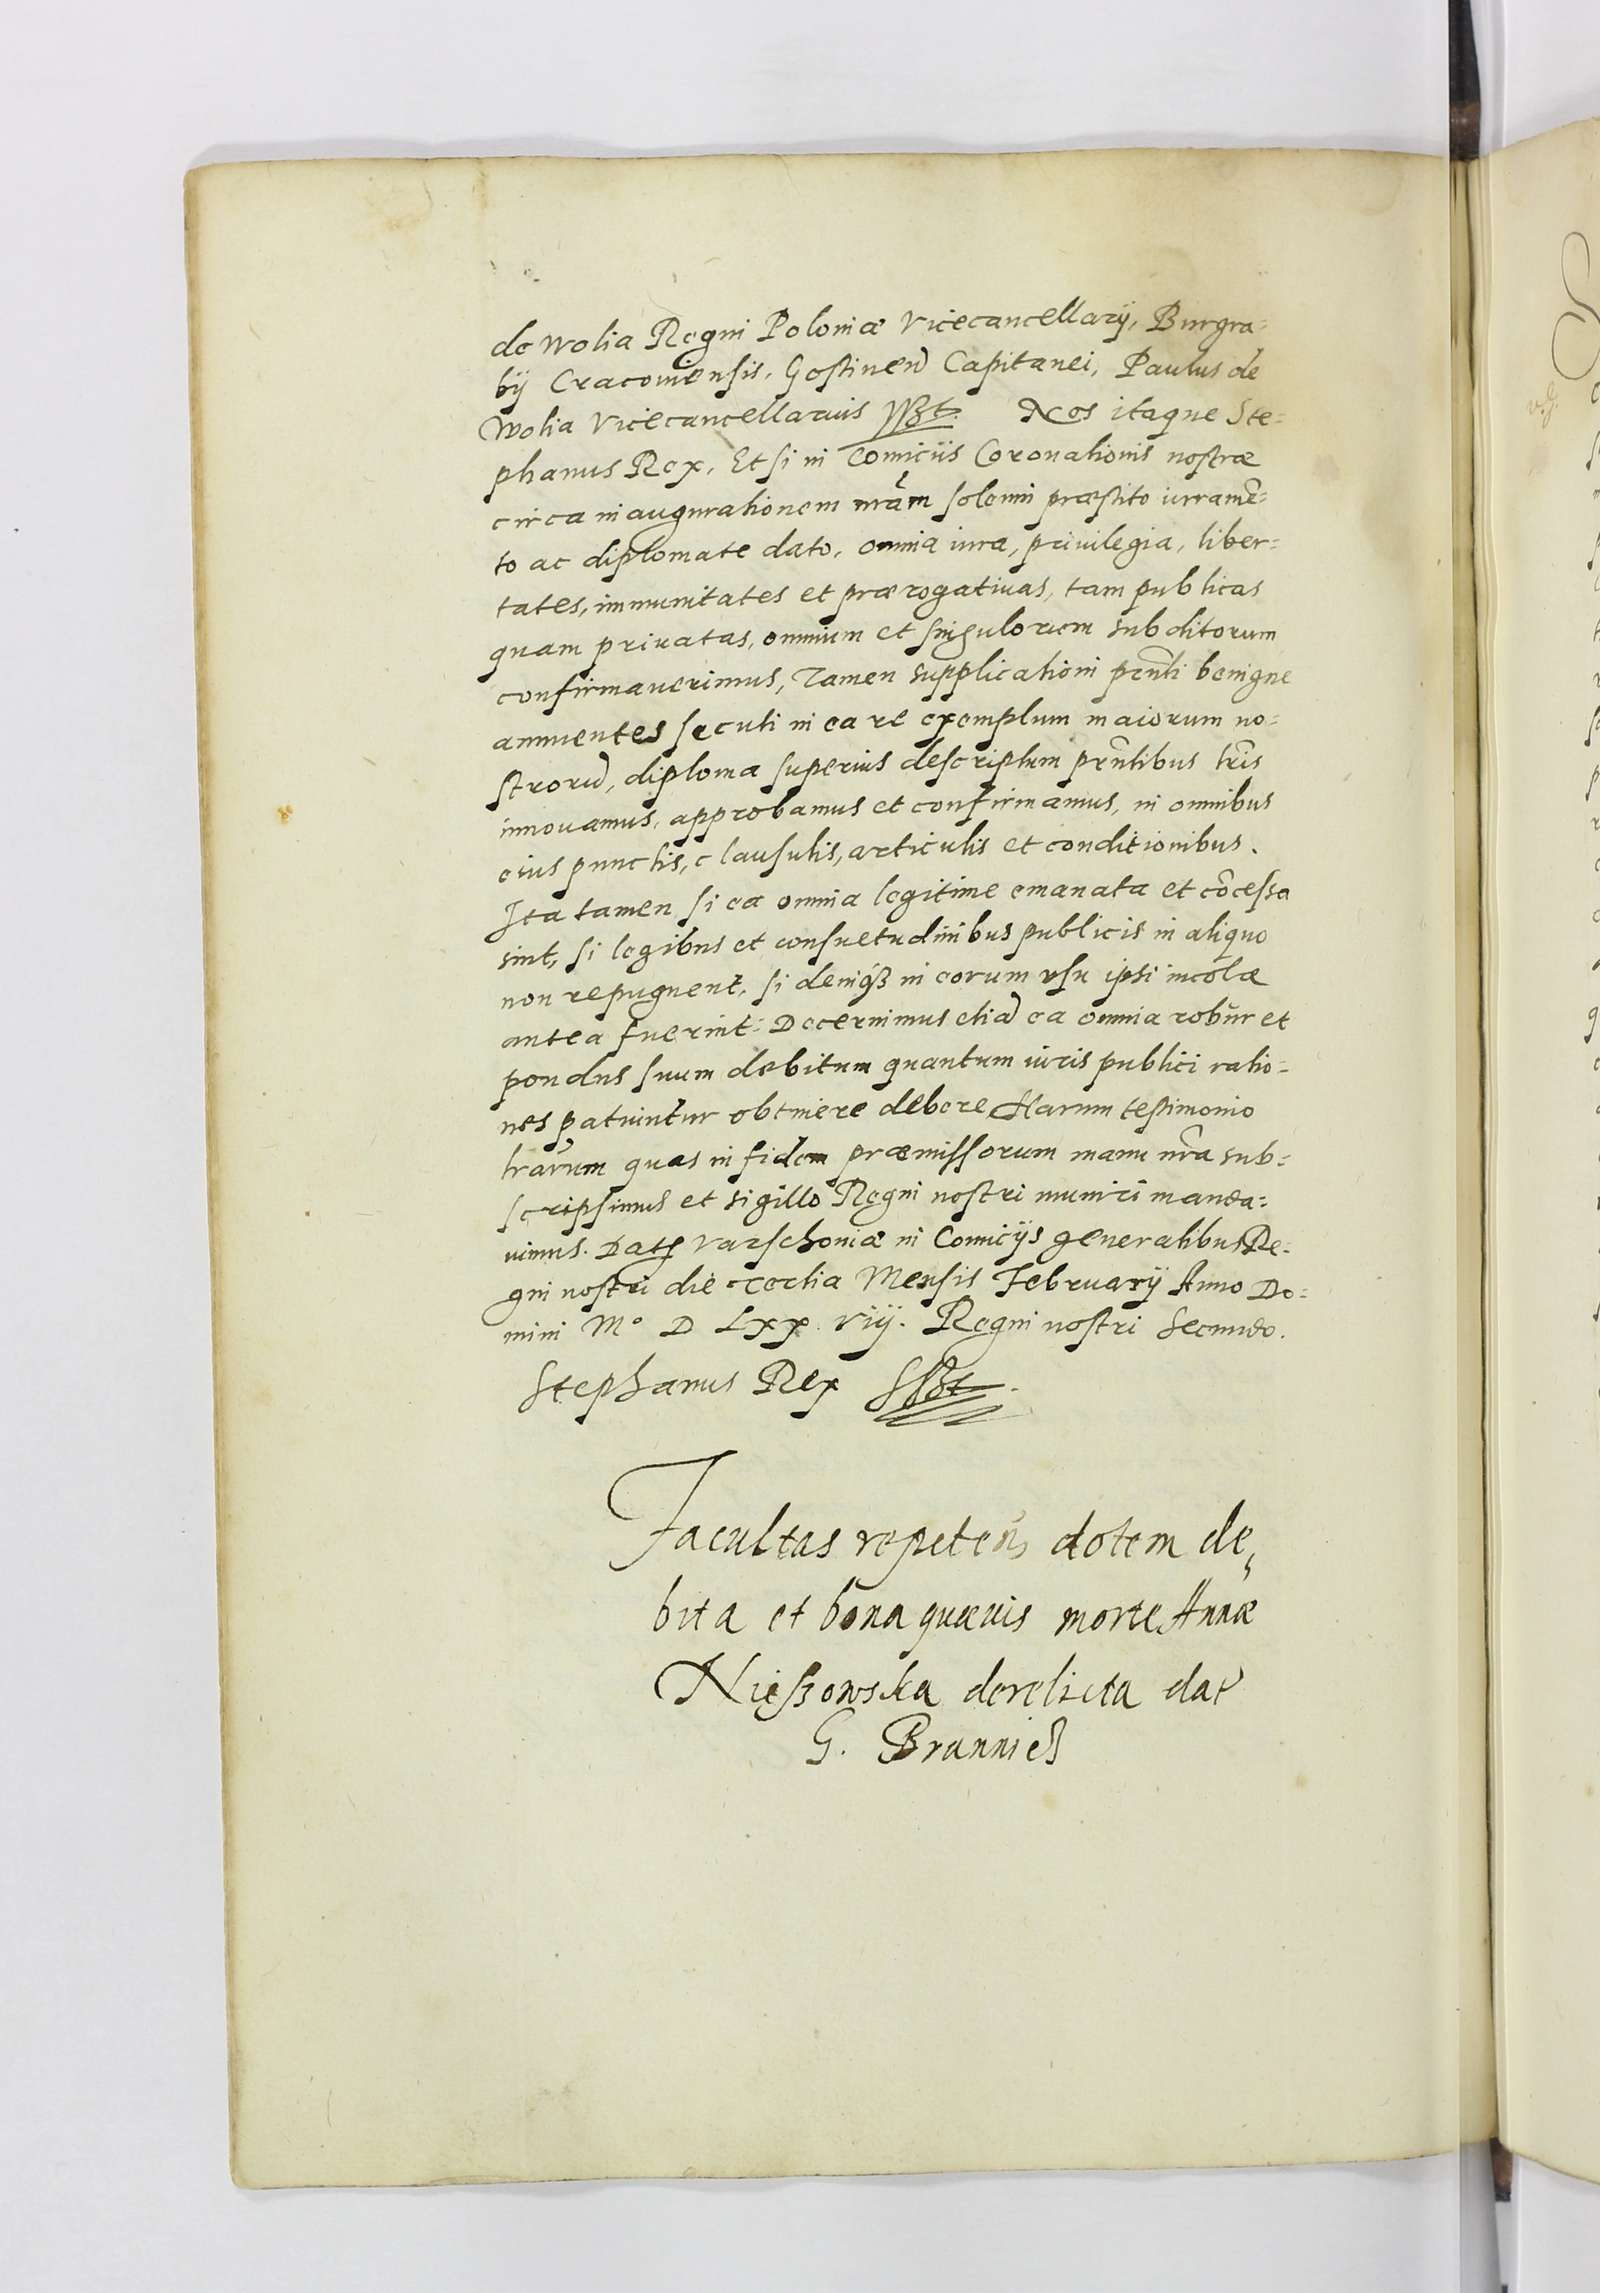 de Wolia Regni Poloniæ Vicecancellarij, Burgra=
bij Cracouiensis, Gostinen Capitanei, Paulus de
Wolia Vicecancellarius sszt. Nos itaque Ste=
phanus Rex, Et si in Comicijs Coronationis nostræ
circa inaugurationem nrãm solenni præstito iurramẽ=
to ac diplomate dato, omnia iura, priuilegia, liber=
tates, immunitates et prærogatiuas, tam publicas
quam priuatas, omnium et singulorum subditorum
confirmauerimus, Tamen supplicationi prñti benigne
annuentes secuti in ea re exemplum maiorum no=
strorũ, diploma superius descriptum prñtibus lr̃is
innouamus, approbamus et confirmamus, in omnibus
eius punctis, clausulis, articulis et conditionibus.
Ita tamen si ea omnia legitime emanata et cõcessa
sint, si legibus et consuetudinibus publicis in aliquo
non repugnent, si deniqȝ in eorum vsu ipsi incolæ
antea fuerint: Decernimus etiã ea omnia robur et
pondus suum debitum quantum iuris publici ratio=
nes patiuntur obtinere debere Harum testimonio
lrãrum quas in fidem præmissorum manu nrã sub=
scripsimus et sigillo Regni nostri muniri manda=
uimus. Datȩ Varschouiæ in Comicijs generalibus Re=
gni nostri die Tertia Mensis February Anno Do=
mini M° D LXX viij. Regni nostri Secundo.
Stephanus Rex sszt.
Facultas repeteñ dotem de,
bita et bona quæuis morte Annæ
Nieszowska derelicta dat
G. Brannicz